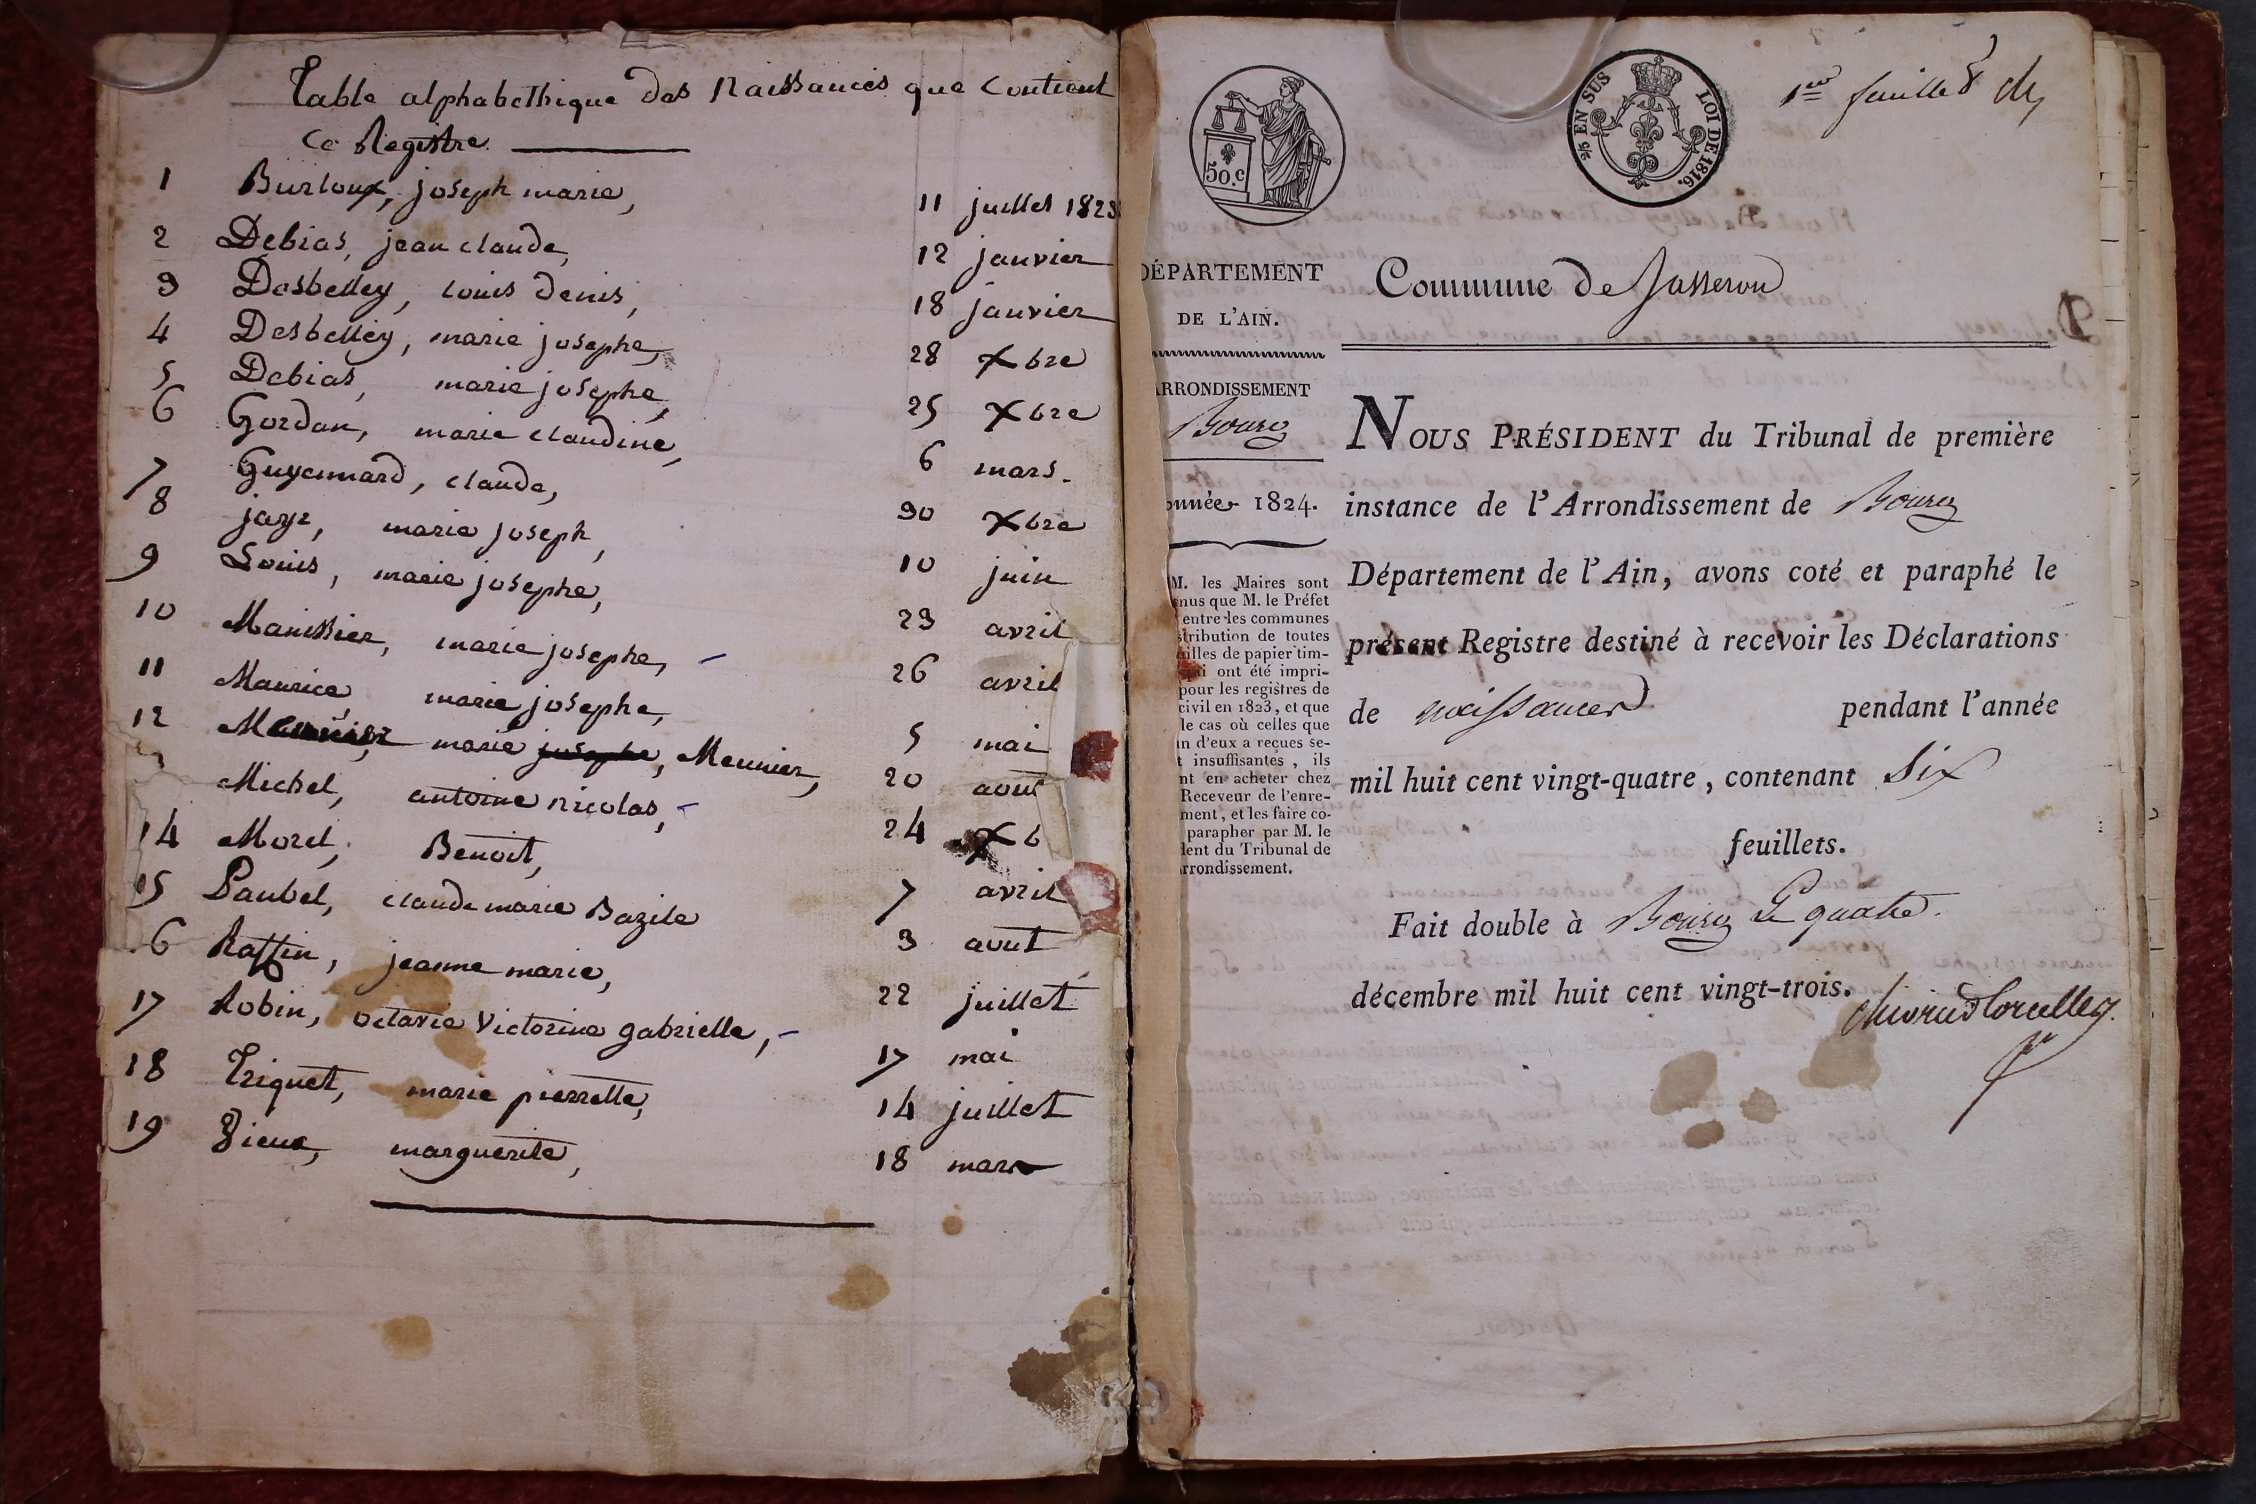 Table alphabethique des Naissances que Contient
Ce Registre
1 Burloux, joseph marie, 11 juillet 1823
2 Debias, jean claude, 12 janvier
3 Desbelley, louis denis, 18 janvier
4 Desbelley, marie josephe, 28 Xbre
5 Debias, marie josephe, 25 Xbre
6 Gordan, marie claudine, 6 mars
7 Guyennard, claude, 30 Xbre
8 jayr, marie joseph, 10 juin
9 Louis, marie josephe, 23 avril
10 Manissier, marie josephe, 26 avril
11 Maurice, marie josephe, 5 mai
12 marie josephe, Meunier, 20 aout
Michel, antoine nicolas, 24 Xb
14 Morel, Benoit, 7 avril
15 Paubel, claude marie Bazile 3 aout
6 Raffin, jeanne marie, 22 juillet
17 Robin, octavie Victorine gabrielle, 17 mai
18 Triquet, marie pierrette, 14 juillet
19 Vieux, marguerite, 18 mars
50.c
2/5 EN SUS LOI DE 1816.
1er feuillet
DÉPARTEMENT
DE L'AIN.
ARRONDISSEMENT
Bourg
Année 1824.
M. les Maires sont
nus que M. le Préfet
entre les communes
stribution de toutes
uilles de papier tim-
qui ont été impri-
pour les registres de
civil en 1823, et que
le cas où celles que
un d'eux a reçues se-
t insuffisantes, ils
nt en acheter chez
Receveur de l'enre-
ment, et les faire co-
parapher par M. le
dent du Tribunal de
rrondissement.
Commune de Jasseron
NOUS PRÉSIDENT du Tribunal de première
instance de l'Arrondissement de Bourg
Département de l'Ain, avons coté et paraphé le
présent Registre destiné à recevoir les Déclarations
de naissances pendant l'année
mil huit cent vingt-quatre, contenant Six
feuillets.
Fait double à Bourg Le quatre
décembre mil huit cent vingt-trois.